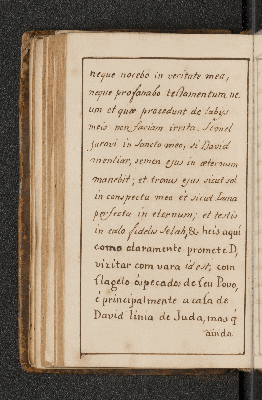 neque nocebo in veritate mea,
neque profanabo testamentum me
um et quæ procedunt de labijs
meis non faciam irrita. Semel
juravi in sancto meo, si David
mentiar, semen ejus in æternum
manebit; et tronus ejus sicut sol
in conspectu meo et sicut Luna
perfecta in eternum; et testis
in celo fidelis Selah, & heis aqui
como claramente promete D,
vizitar com vara id est, com
flagelo os pecados de seu Povo,
é principalmente a casa de
David linia de Juda, mas q̃
ainda